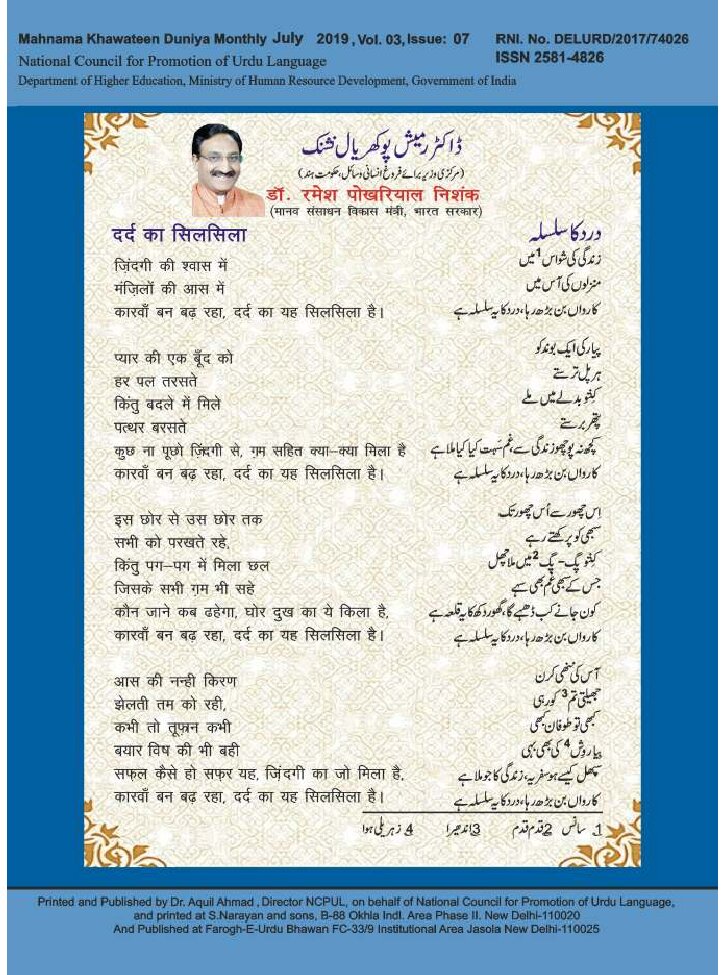 Mahnama Khawateen Duniya Monthly July 2019, Vol. 03, Issue: 07
RNI. No. DELURD/2017/74026
National Council for Promotion of Urdu Language
ISSN 2581-4826
Department of Higher Education, Ministry of Human Resource Development, Government of India
ڈاکٹر رمیش پوکھریال نشنک
(مرکزی وزیر برائے فروغ انسانی وسائل، حکومت ہند)
डॉ. रमेश पोखरियाल निशंक
(मानव संसाधन विकास मंत्री, भारत सरकार)
दर्द का सिलसिला
ज़िंदगी की श्वास में
मंज़िलों की आस में
कारवाँ बन बढ़ रहा, दर्द का यह सिलसिला है।
प्यार की एक बूँद को
हर पल तरसते
किंतु बदले में मिले
पत्थर बरसते
कुछ ना पूछो ज़िंदगी से, ग़म सहित क्या-क्या मिला है
कारवाँ बन बढ़ रहा, दर्द का यह सिलसिला है।
इस छोर से उस छोर तक
सभी को परखते रहे,
किंतु पग-पग में मिला छल
जिसके सभी ग़म भी सहे
कौन जाने कब ढहेगा, घोर दुख का ये किला है,
कारवाँ बन बढ़ रहा, दर्द का यह सिलसिला है।
आस की नन्ही किरण
झेलती तम को रही,
कभी तो तूफ़ान कभी
बयार विष की भी बही
सफल कैसे हो सफ़र यह, ज़िंदगी का जो मिला है,
कारवाँ बन बढ़ रहा, दर्द का यह सिलसिला है।
درد کا سلسلہ
زندگی کی شواس1 میں
منزلوں کی آس میں
کارواں بن بڑھ رہا، درد کا یہ سلسلہ ہے
پیار کی ایک بوند کو
ہر پل ترستے
کنتو بدلے میں ملے
پتھر برستے
کچھ نہ پوچھو زندگی سے، غم سہت کیا کیا ملا ہے
کارواں بن بڑھ رہا، درد کا یہ سلسلہ ہے
اِس چھور سے اُس چھور تک
سبھی کو پرکھتے رہے
کنتو پگ-پگ2 میں ملا چھل
جس کے سبھی غم بھی سہے
کون جانے کب ڈھہے گا، گھور دکھ کا یہ قلعہ ہے
کارواں بن بڑھ رہا، درد کا یہ سلسلہ ہے
آس کی ننھی کرن
جھیلتی تم3 کو رہی
کبھی تو طوفان کبھی
بیار وش4 کی بھی بہی
سپھل کیسے ہو سفر یہ، زندگی کا جو ملا ہے
کارواں بن بڑھ رہا، درد کا یہ سلسلہ ہے
1۔ سانس 2 قدم قدم 3 اندھیرا 4 زہریلی ہوا
Printed and Published by Dr. Aquil Ahmad, Director NCPUL, on behalf of National Council for Promotion of Urdu Language,
and printed at S.Narayan and sons, B-88 Okhla Indl. Area Phase II. New Delhi-110020
And Published at Farogh-E-Urdu Bhawan FC-33/9 Institutional Area Jasola New Delhi-110025